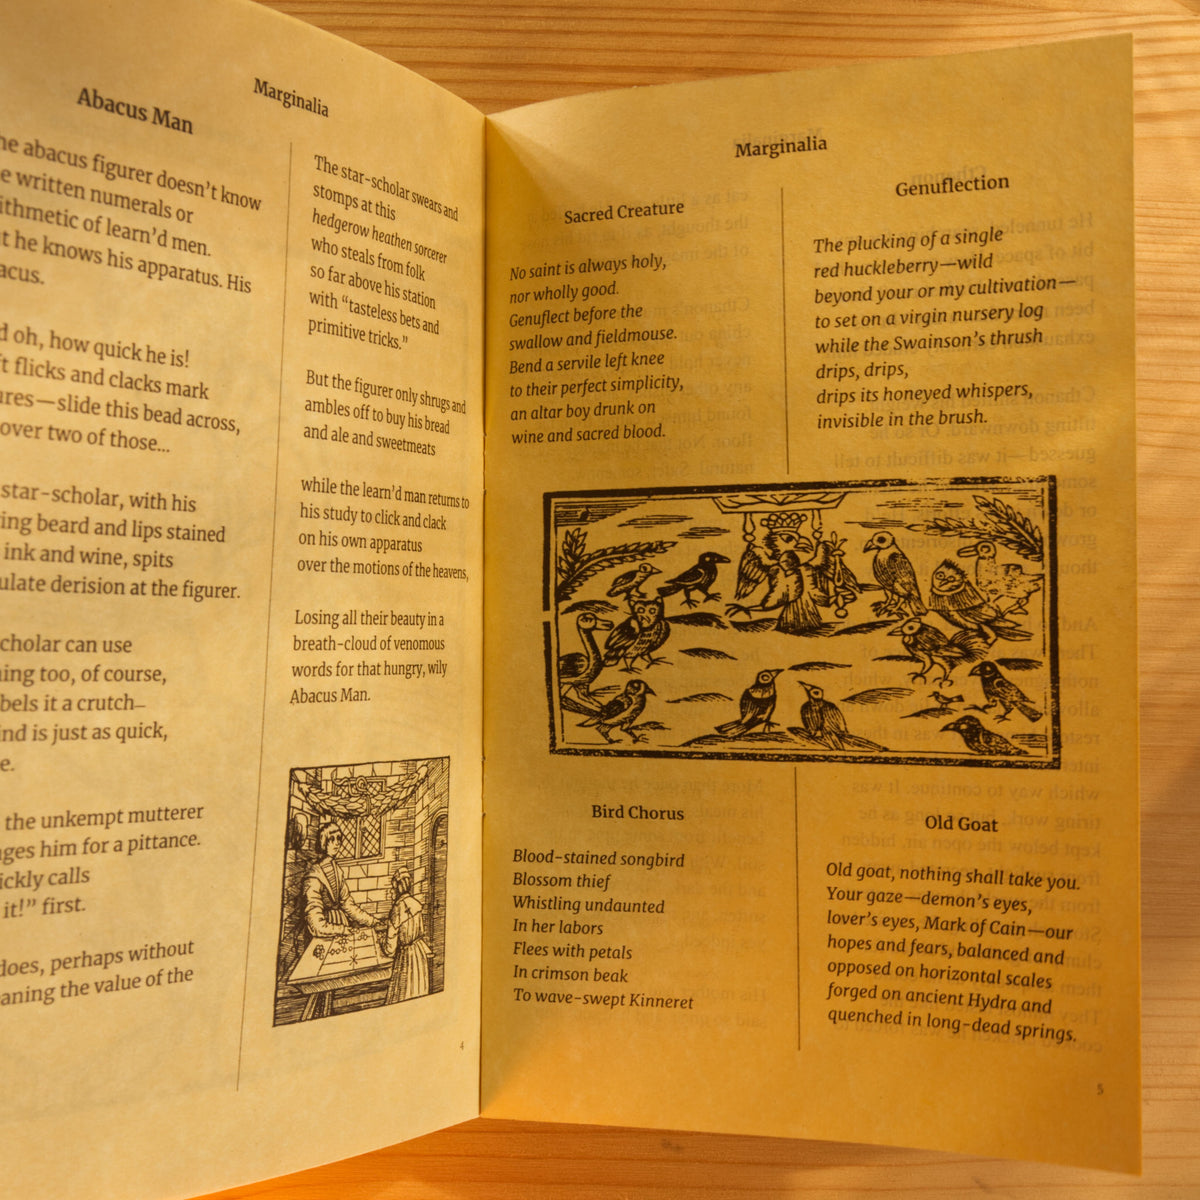 Marginalia
Abacus Man
he abacus figurer doesn’t know
e written numerals or
ithmetic of learn’d men.
t he knows his apparatus. His
acus.
d oh, how quick he is!
t flicks and clacks mark
ures—slide this bead across,
over two of those...
star-scholar, with his
ing beard and lips stained
ink and wine, spits
ulate derision at the figurer.
cholar can use
ning too, of course,
bels it a crutch—
ind is just as quick,
e.
the unkempt mutterer
nges him for a pittance.
ickly calls
it!” first.
does, perhaps without
eaning the value of the
The star-scholar swears and
stomps at this
hedgerow heathen sorcerer
who steals from folk
so far above his station
with “tasteless bets and
primitive tricks.”
But the figurer only shrugs and
ambles off to buy his bread
and ale and sweetmeats
while the learn’d man returns to
his study to click and clack
on his own apparatus
over the motions of the heavens,
Losing all their beauty in a
breath-cloud of venomous
words for that hungry, wily
Abacus Man.
4
Marginalia
Sacred Creature
No saint is always holy,
nor wholly good.
Genuflect before the
swallow and fieldmouse.
Bend a servile left knee
to their perfect simplicity,
an altar boy drunk on
wine and sacred blood.
Genuflection
The plucking of a single
red huckleberry—wild
beyond your or my cultivation—
to set on a virgin nursery log
while the Swainson’s thrush
drips, drips,
drips its honeyed whispers,
invisible in the brush.
Bird Chorus
Blood-stained songbird
Blossom thief
Whistling undaunted
In her labors
Flees with petals
In crimson beak
To wave-swept Kinneret
Old Goat
Old goat, nothing shall take you.
Your gaze—demon’s eyes,
lover’s eyes, Mark of Cain—our
hopes and fears, balanced and
opposed on horizontal scales
forged on ancient Hydra and
quenched in long-dead springs.
5